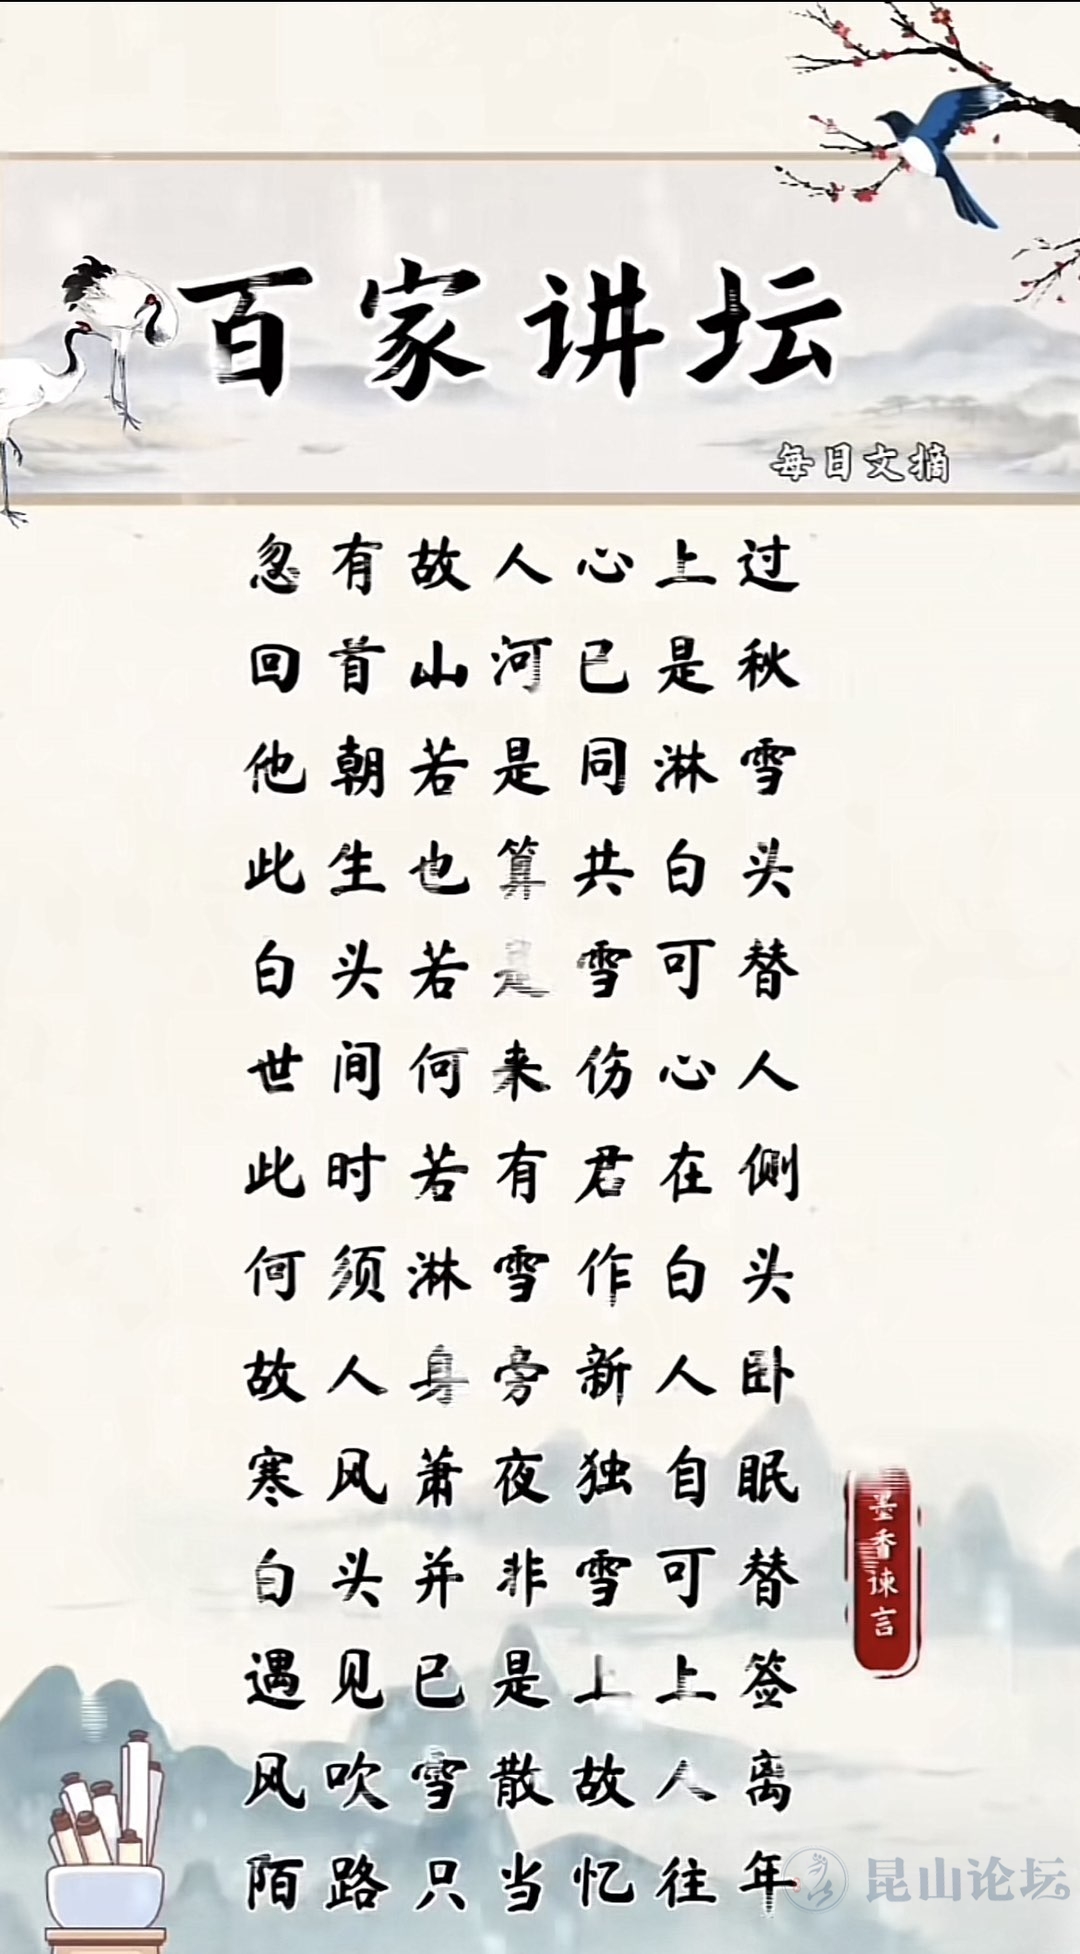 百家讲坛
每日文摘
忽有故人心上过
回首山河已是秋
他朝若是同淋雪
此生也算共白头
白头若是雪可替
世间何来伤心人
此时若有君在侧
何须淋雪作白头
故人身旁新人卧
寒风萧夜独自眠
白头并非雪可替
遇见已是上上签
风吹雪散故人离
陌路只当忆往年
墨香谏言
昆山论坛